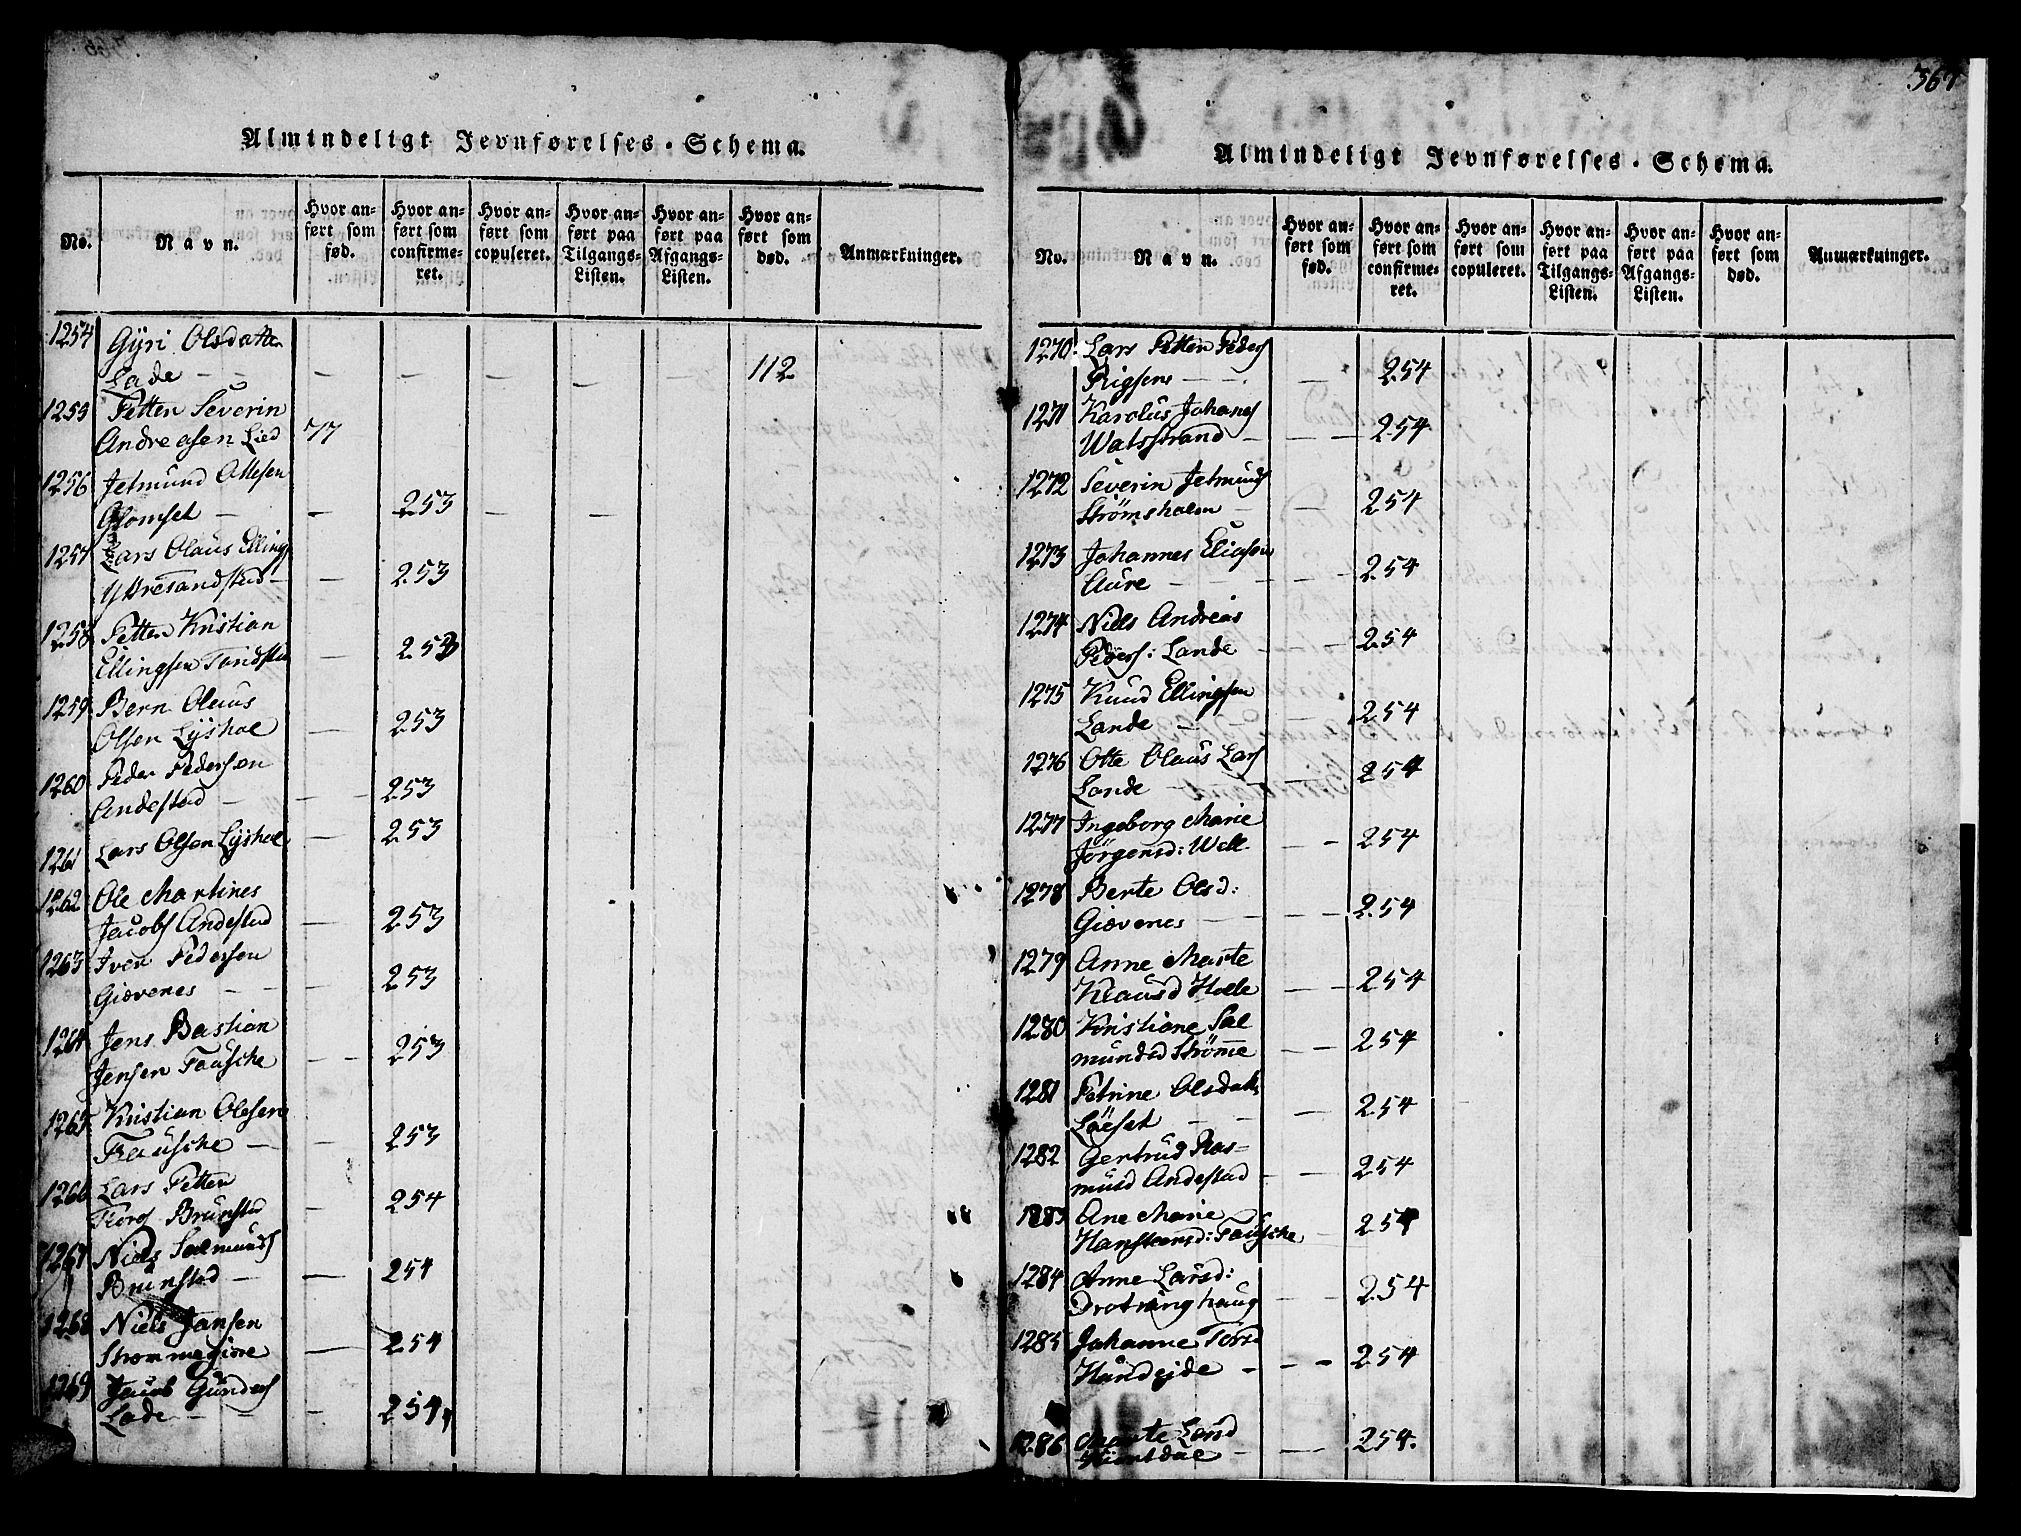 Almindeligt Jevnførelses-Schema.
No.
Navn.
Hvor anført som fød.
Hvor anført som confirmeret.
Hvor anført som copuleret.
Hvor anført paa Tilgangs-Listen.
Hvor anført paa Afgangs-Listen.
Hvor anført som død.
Anmærkninger.
1254 Gÿri Olsdatter
Lade - - - - - - - 112
1255 Petter Severin
Andreasen Lied 77
1256 Jetmund Ottesen
Glomset - - 253 - -
1257 Lars Olaus Ellings
Yttresandstad - - 253
1258 Petter Kristian
Ellingsen - 253
1259 Bern Olaus
Olsen Lÿshol - 253
1260 Peder Pedersen
Andestad - - - 253
1261 Lars Olsen Lÿshol - 253
1262 Ole Martines
Jacobs Andestad - 253
1263 Iver Pedersen
Giævenes - - - 253
1264 Jens Bastian
Jensen Fausche - - 253
1265 Kristian Olesen
Fausche - - 253
1266 Lars Petter
Brunstad - 254
1267 Niels Salmunds
Brunstad - - 254
1268 Niels Jansen
Strømmegiære - 254
1269 Jacob Gunders
Lade - - - 254
367
Almindeligt Jevnførelses-Schema.
No.
Navn.
Hvor anført som fød.
Hvor anført som confirmeret.
Hvor anført som copuleret.
Hvor anført paa Tilgangs-Listen.
Hvor anført paa Afgangs-Listen.
Hvor anført som død.
Anmærkninger.
1270 Lars Petter Peders
Rigsens - - - 254
1271 Karolus Johanes
Watsstrand - - - 254
1272 Severin Jetmunds
Strømsholm - - 254
1273 Johannes Eliasen
Aure - - - - 254
1274 Niels Andreas
Peders: Lande - - - 254
1275 Knud Ellingsen
Lande - - 254
1276 Otte Olaus Lars
Lande - - 254
1277 Ingeborg Marie
Jörgensd: Well - - 254
1278 Berte Olsd:
Giævenes - - - - 254
1279 Anne Marte
Klausd Holle - - 254
1280 Kristiane Sal
mundsd Strømme - - 254
1281 Petrine Olsdatt.
Löeset - - - 254
1282 Gertrud Ras-
musd Andestad - - 254
1283 Ane Marie
Hanstensd: Fausche - 254
1284 Anne Larsd:
Drotninghaug - - 254
1285 Johanne
- - - 254
1286 Marte
- - - 254.